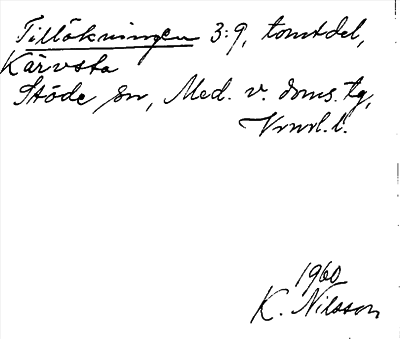 Tillökningen 3:9, tomtdel,
Kärvsta
Stöde sn, Med. v. doms. tg,
Vrnrl. l.
1960
K. Nilsson